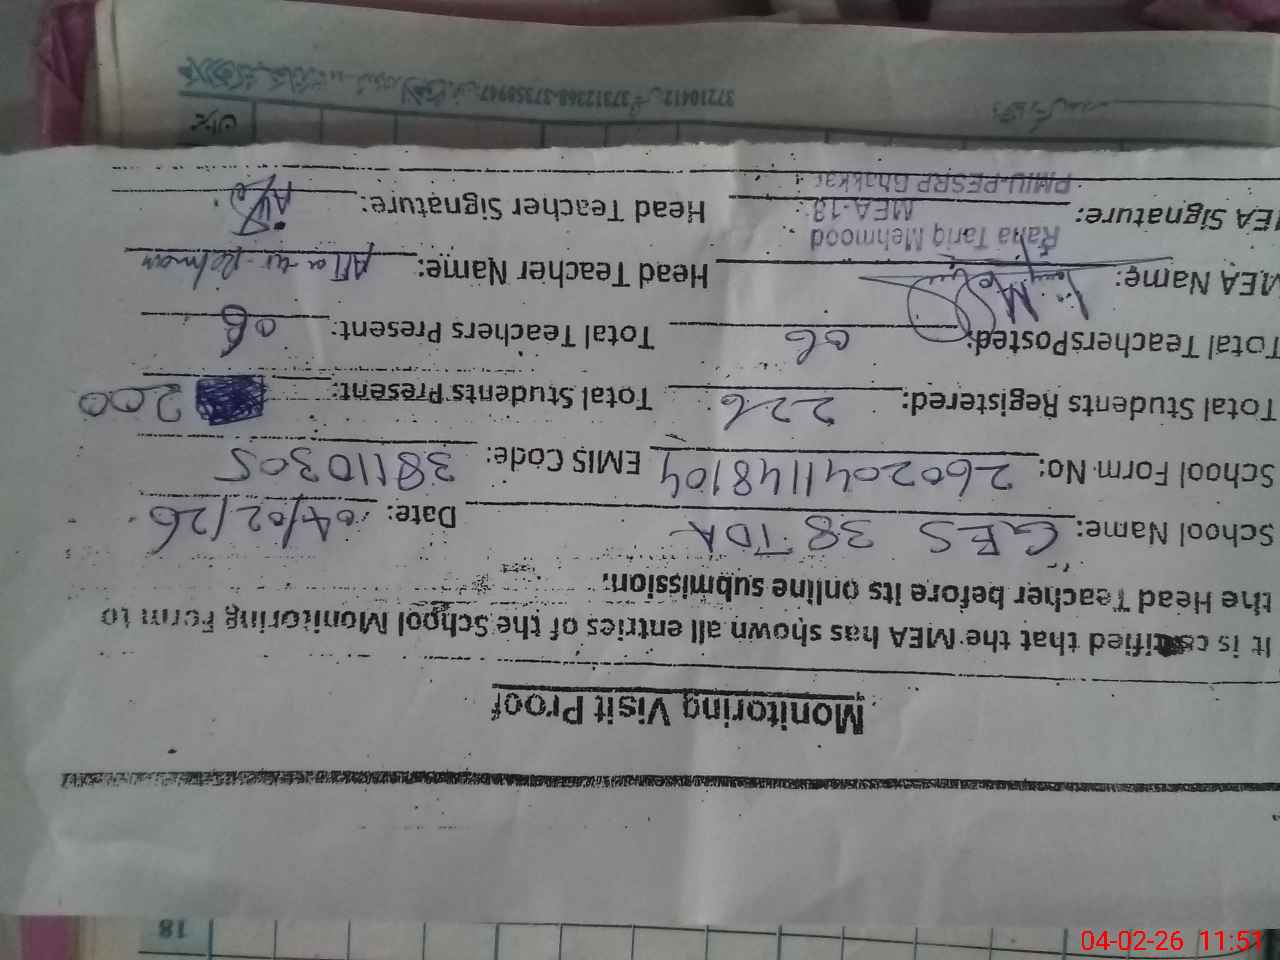 Monitoring Visit Proof
It is certified that the MEA has shown all entries of the School Monitoring Form to
the Head Teacher before its online submission.
School Name: GES 38 TDA Date: 04/02/26
School Form No: 26020411148104 EMIS Code: 38110305
Total Students Registered: 226 Total Students Present: 200
Total TeachersPosted: 06 Total Teachers Present: 06
MEA Name: Head Teacher Name: Atta-ur-Rehman
Rana Tariq Mehmood
MEA-18
MEA Signature: Head Teacher Signature:
PMIU-PESRP Bhakkar
37210412
37312368-37358947
18
04-02-26 11:51